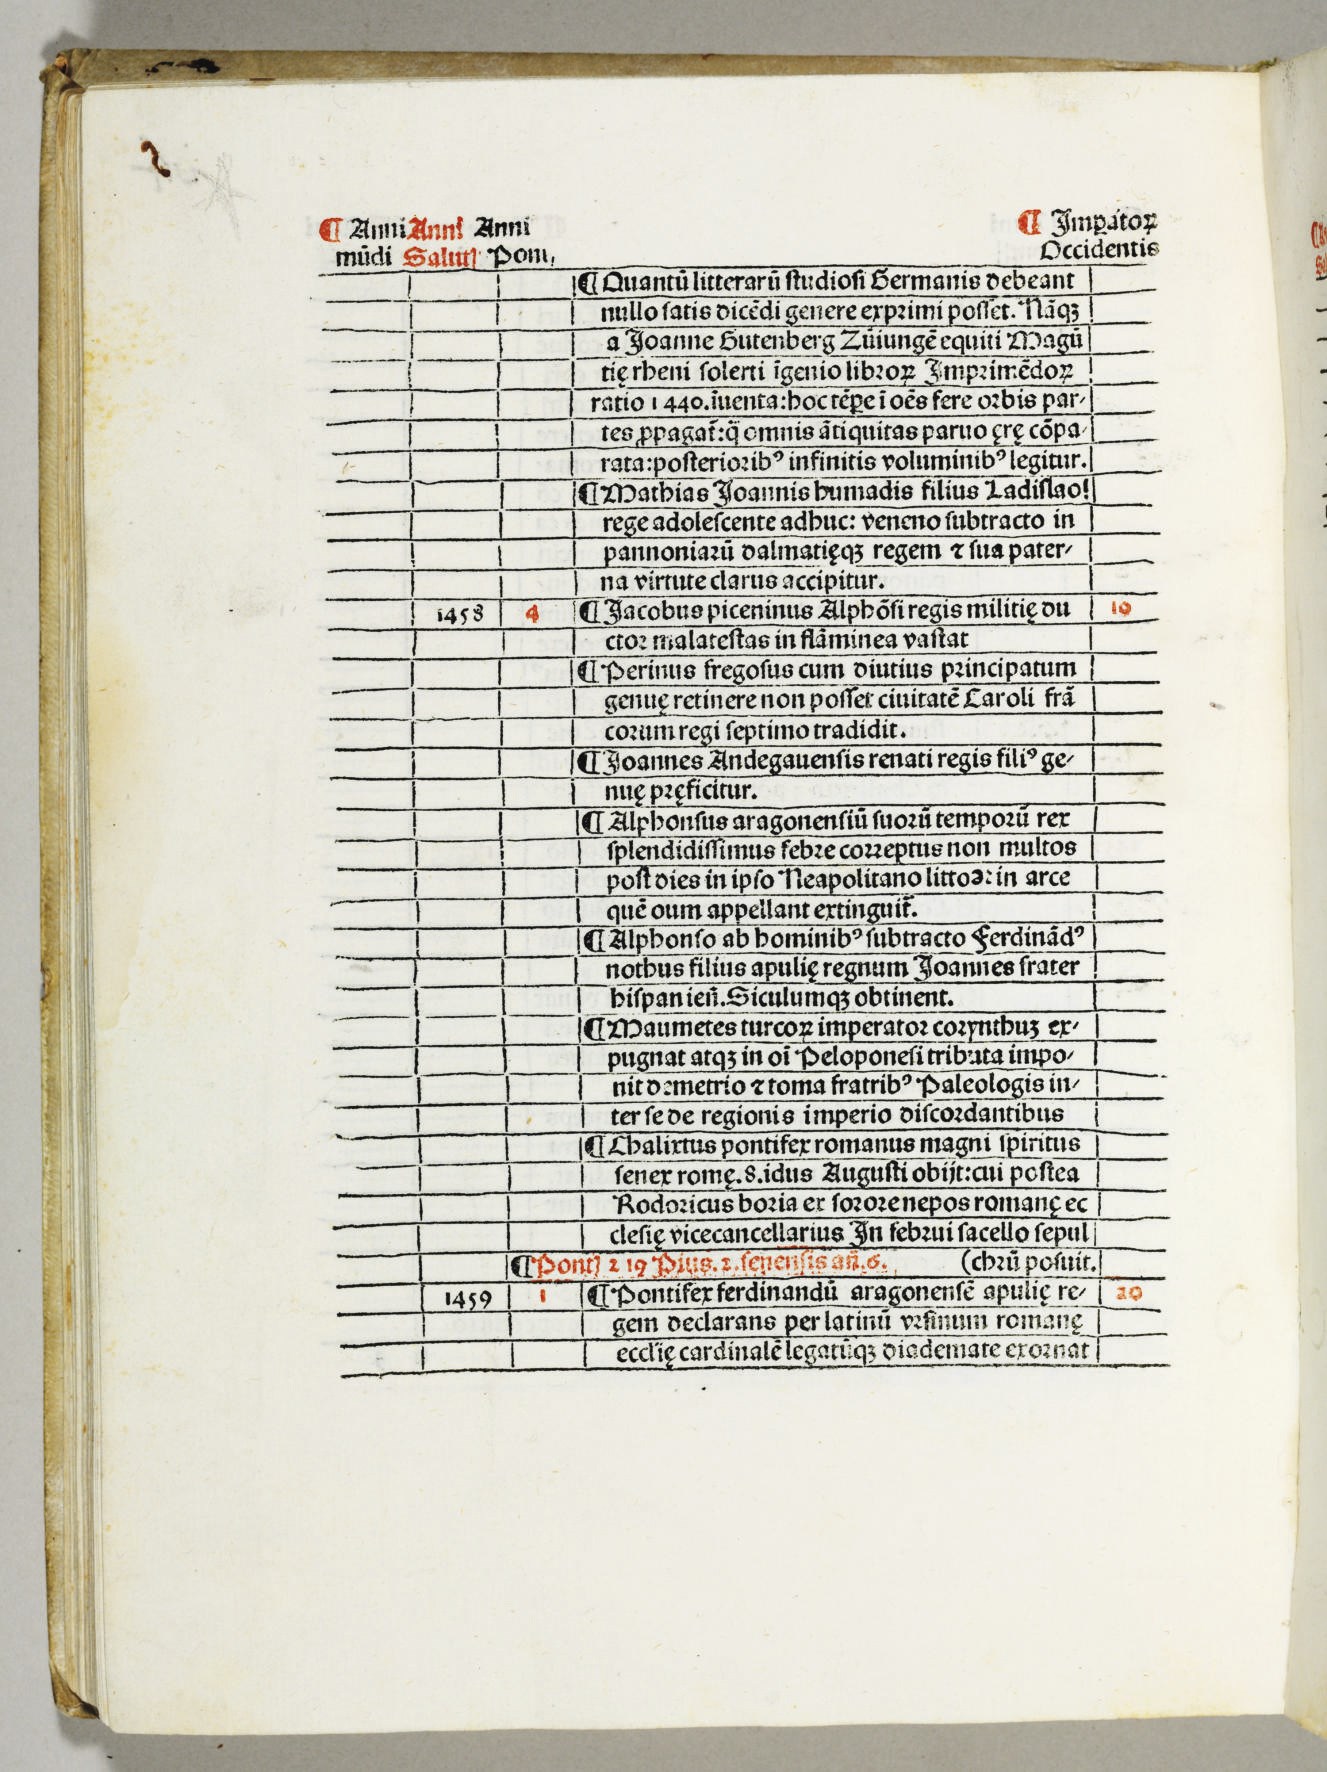 ¶ Anni Anni Anni ¶ Impatoꝝ
mūdi Salutꝭ Pont, Occidentis
¶ Quantū litterarū studiosi Germanis debeant
nullo satis dicēdi genere exprimi posset. Nāqꝫ
a Joanne Gutenberg Zūiungē equiti Magū
tię rheni solerti īgenio libroꝝ Imprimēdoꝝ
ratio 1440. īuenta: hoc tēpe ī oēs fere orbis par⸗
tes ꝓpagat̄: q̄ omnis ātiquitas paruo ęrę cōpa⸗
rata: posteriorib⁹ infinitis voluminib⁹ legitur.
¶ Mathias Joannis humadis filius Ladislao!
rege adolescente adhuc: veneno subtracto in
pannoniarū dalmatięqꝫ regem ⁊ sua pater⸗
na virtute clarus accipitur.
1458 4 ¶ Jacobus piceninus Alphōsi regis militię du 19
ctor malatestas in flāminea vastat
¶ Perinus fregosus cum diutius principatum
genuę retinere non posset ciuitatē Caroli frā
corum regi septimo tradidit.
¶ Joannes Andegauensis renati regis fili⁹ ge⸗
nuę pręficitur.
¶ Alphonsus aragonensiū suorū temporū rex
splendidissimus febre correptus non multos
post dies in ipso Neapolitano littoꝛ: in arce
quē oum appellant extinguit̄.
¶ Alphonso ab hominib⁹ subtracto Ferdinād⁹
nothus filius apulię regnum Joannes frater
hispanień. Siculumqꝫ obtinent.
¶ Maumetes turcoꝝ imperator corynthuꝫ ex⸗
pugnat atqꝫ in oī Peloponesi tributa impo⸗
nit demetrio ⁊ toma fratrib⁹ Paleologis in⸗
ter se de regionis imperio discordantibus
¶ Chalixtus pontifex romanus magni spiritus
senex romę. 8. idus Augusti obijt: cui postea
Rodoricus boria ex sorore nepos romanę ec
clesię vicecancellarius In februi sacello sepul
¶ Pontꝭ 219 Pius. 2. senensis an̄. 6. (chrū posuit.
1459 1 ¶ Pontifex ferdinandū aragonensē apulię re⸗ 20
gem declarans per latinū vrsinum romanę
eccl'ię cardinalē legatūqꝫ diademate exornat